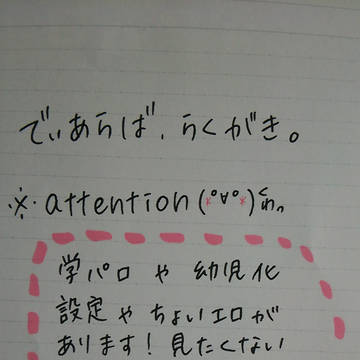 でぃあらば、らくがき。
※attention(*°∀°*)くわっ
学パロ や 幼児化
設定 や ちょいエロが
あります！見たくない